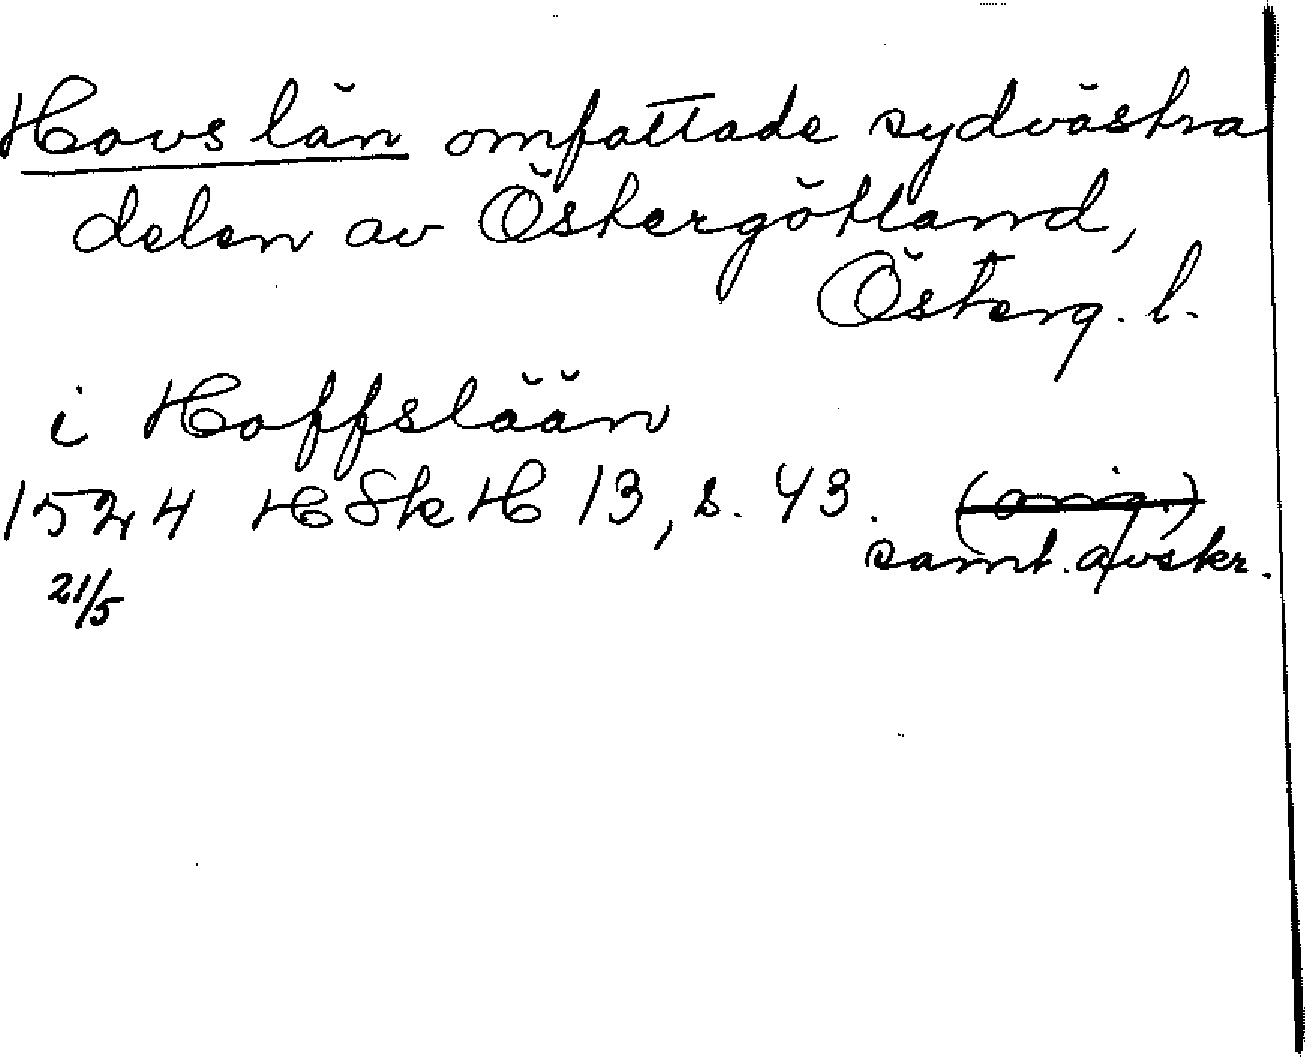 Hovs län omfattade sydvästra
delen av Östergötland,
Österg. l.
i Hoffslään
1524 HSkH 13, s. 43. (orig.)
samt. avskr.
21/5